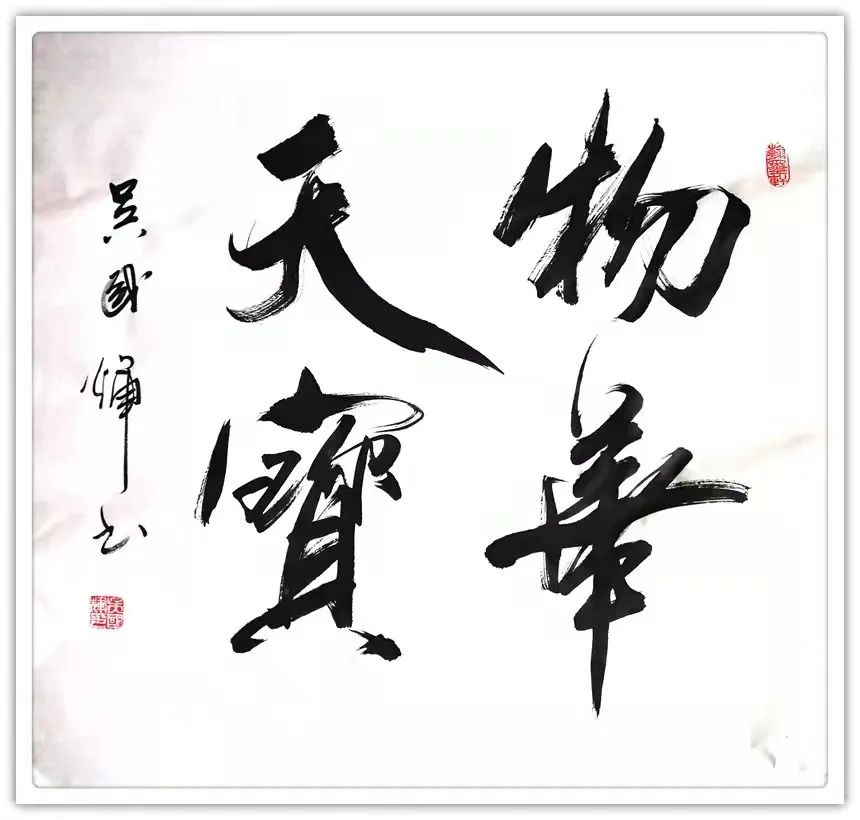 物華
天寶
吴國輝书